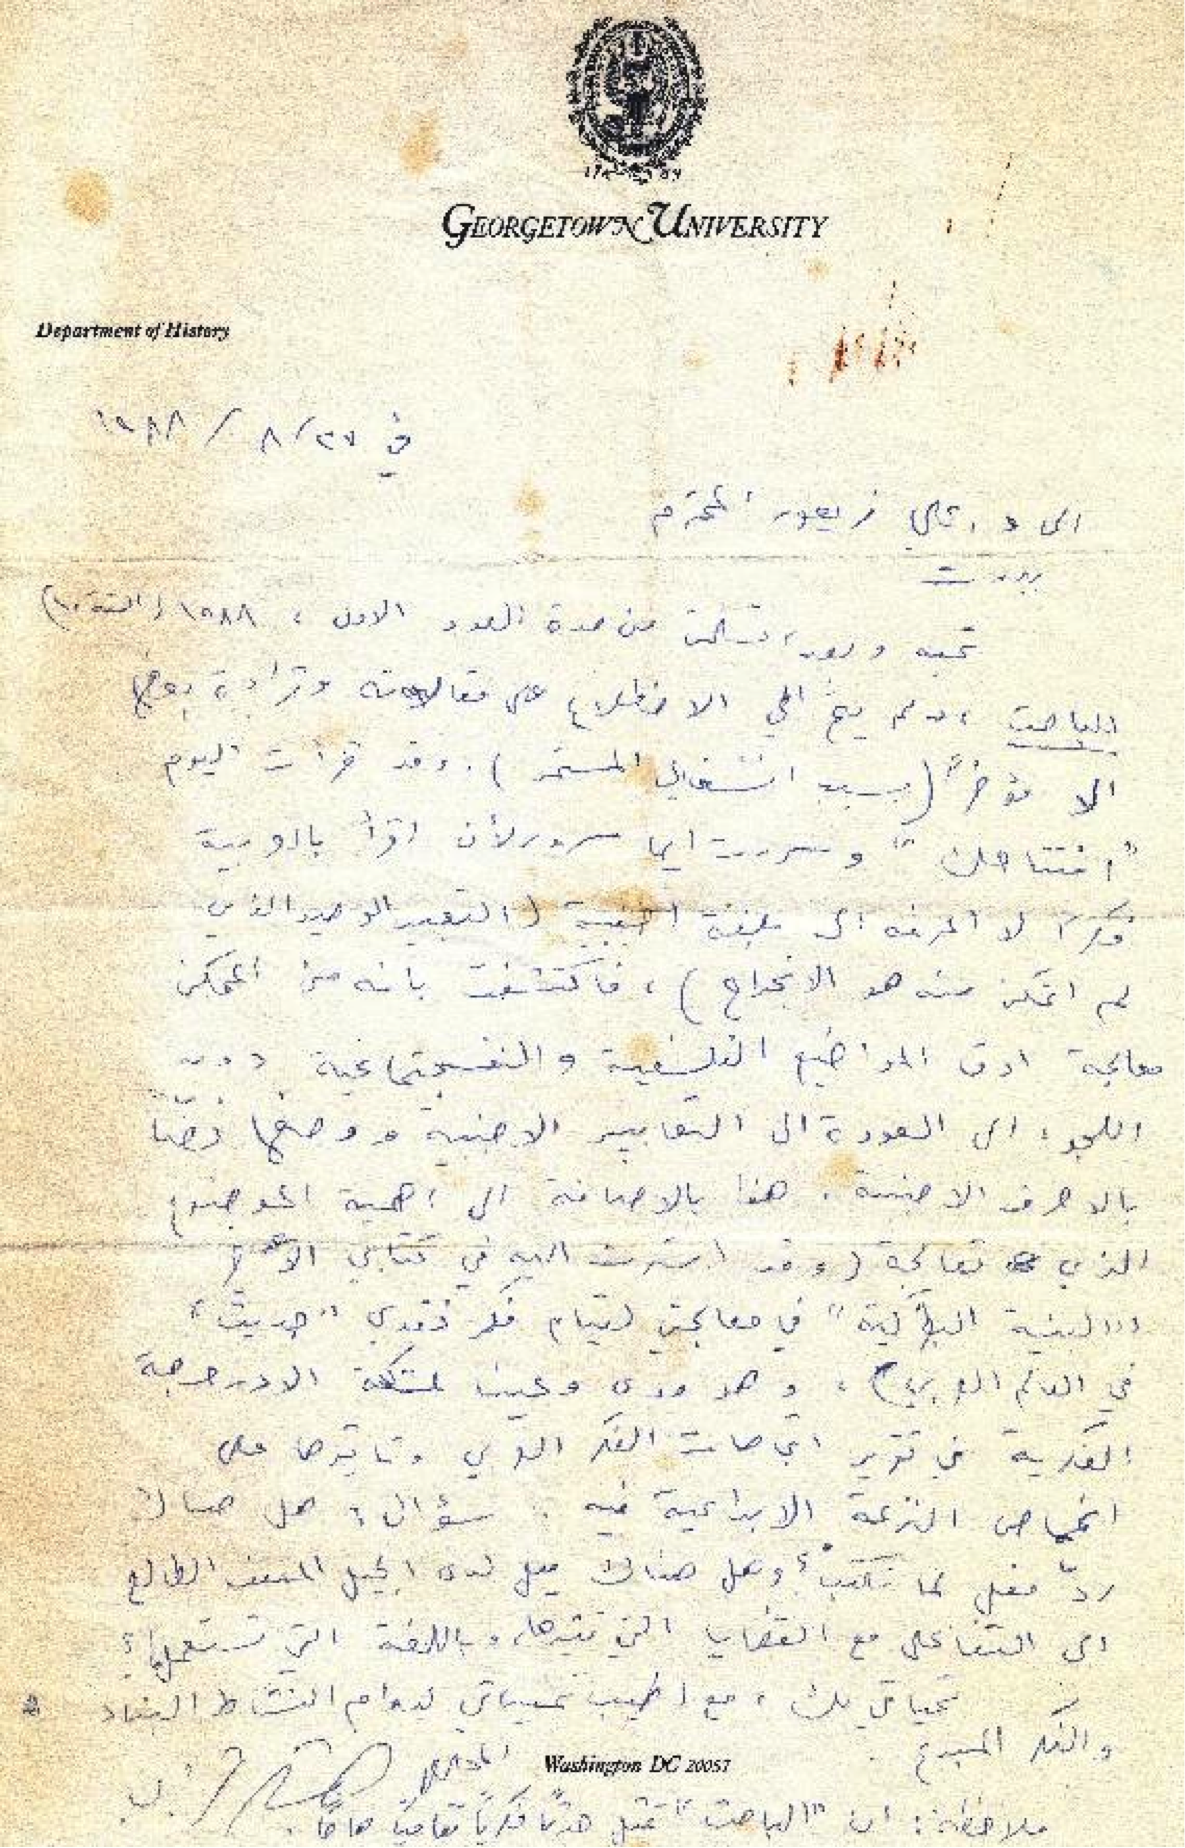 GEORGETOWN UNIVERSITY
Department of History
في ٢٧/٨/١٩٨٨
الى د. علي زيعور المحترم
بيروت
تحية وبعد، تسلمت من مدة العدد الاول، ١٩٨٨ (السنة ١٠)
الباحث، ولم يتح لي الاطلاع على مقالاته وقراءة بعضها
الا مؤخراً (بسبب انشغالي المستمر). وقد قرأت اليوم
"افتتاحك" وسررت ايما سرور لأن اقرأ بالعربية
فكراً لا اعرفه الا بلغة اجنبية (التعبير الوحيد الذي
لم اتمكن منه هو الانجراح)، فاكتشفت بانه من الممكن
معالجة ادق المواضيع الفلسفية والنفسجتماعية دون
اللجوء الى العودة الى التعابير الاجنبية ووضعها
بالاحرف الاجنبية. هذا بالاضافة الى اهمية الموضوع
الذي تعالجه (وقد اشرت اليه في كتابي الاخير
"البنية البطركية" في معالجتي لقيام فكر نقدي "حديث"
في العالم العربي)، وهو مدى وعينا لمشكلة
الفكرية في تقرير اتجاهات الفكر العربي وتأثيرها على
النزعة الابداعية فيه. سؤال: هل هناك
ردّ فعل لما تكتب؟ وهل هناك ميل لدى الجيل المثقف الطالع
الى التفاعل مع القضايا التي تثيرها، وباللغة التي تستعملها؟
تحياتي لك، مع اطيب تمنياتي لدوام النشاط البناء
والفكر المبدع.
المخلص
Washington DC 20057
ملاحظة: ان "الباحث" تمثل حدثاً فكرياً ثقافياً هاماً.